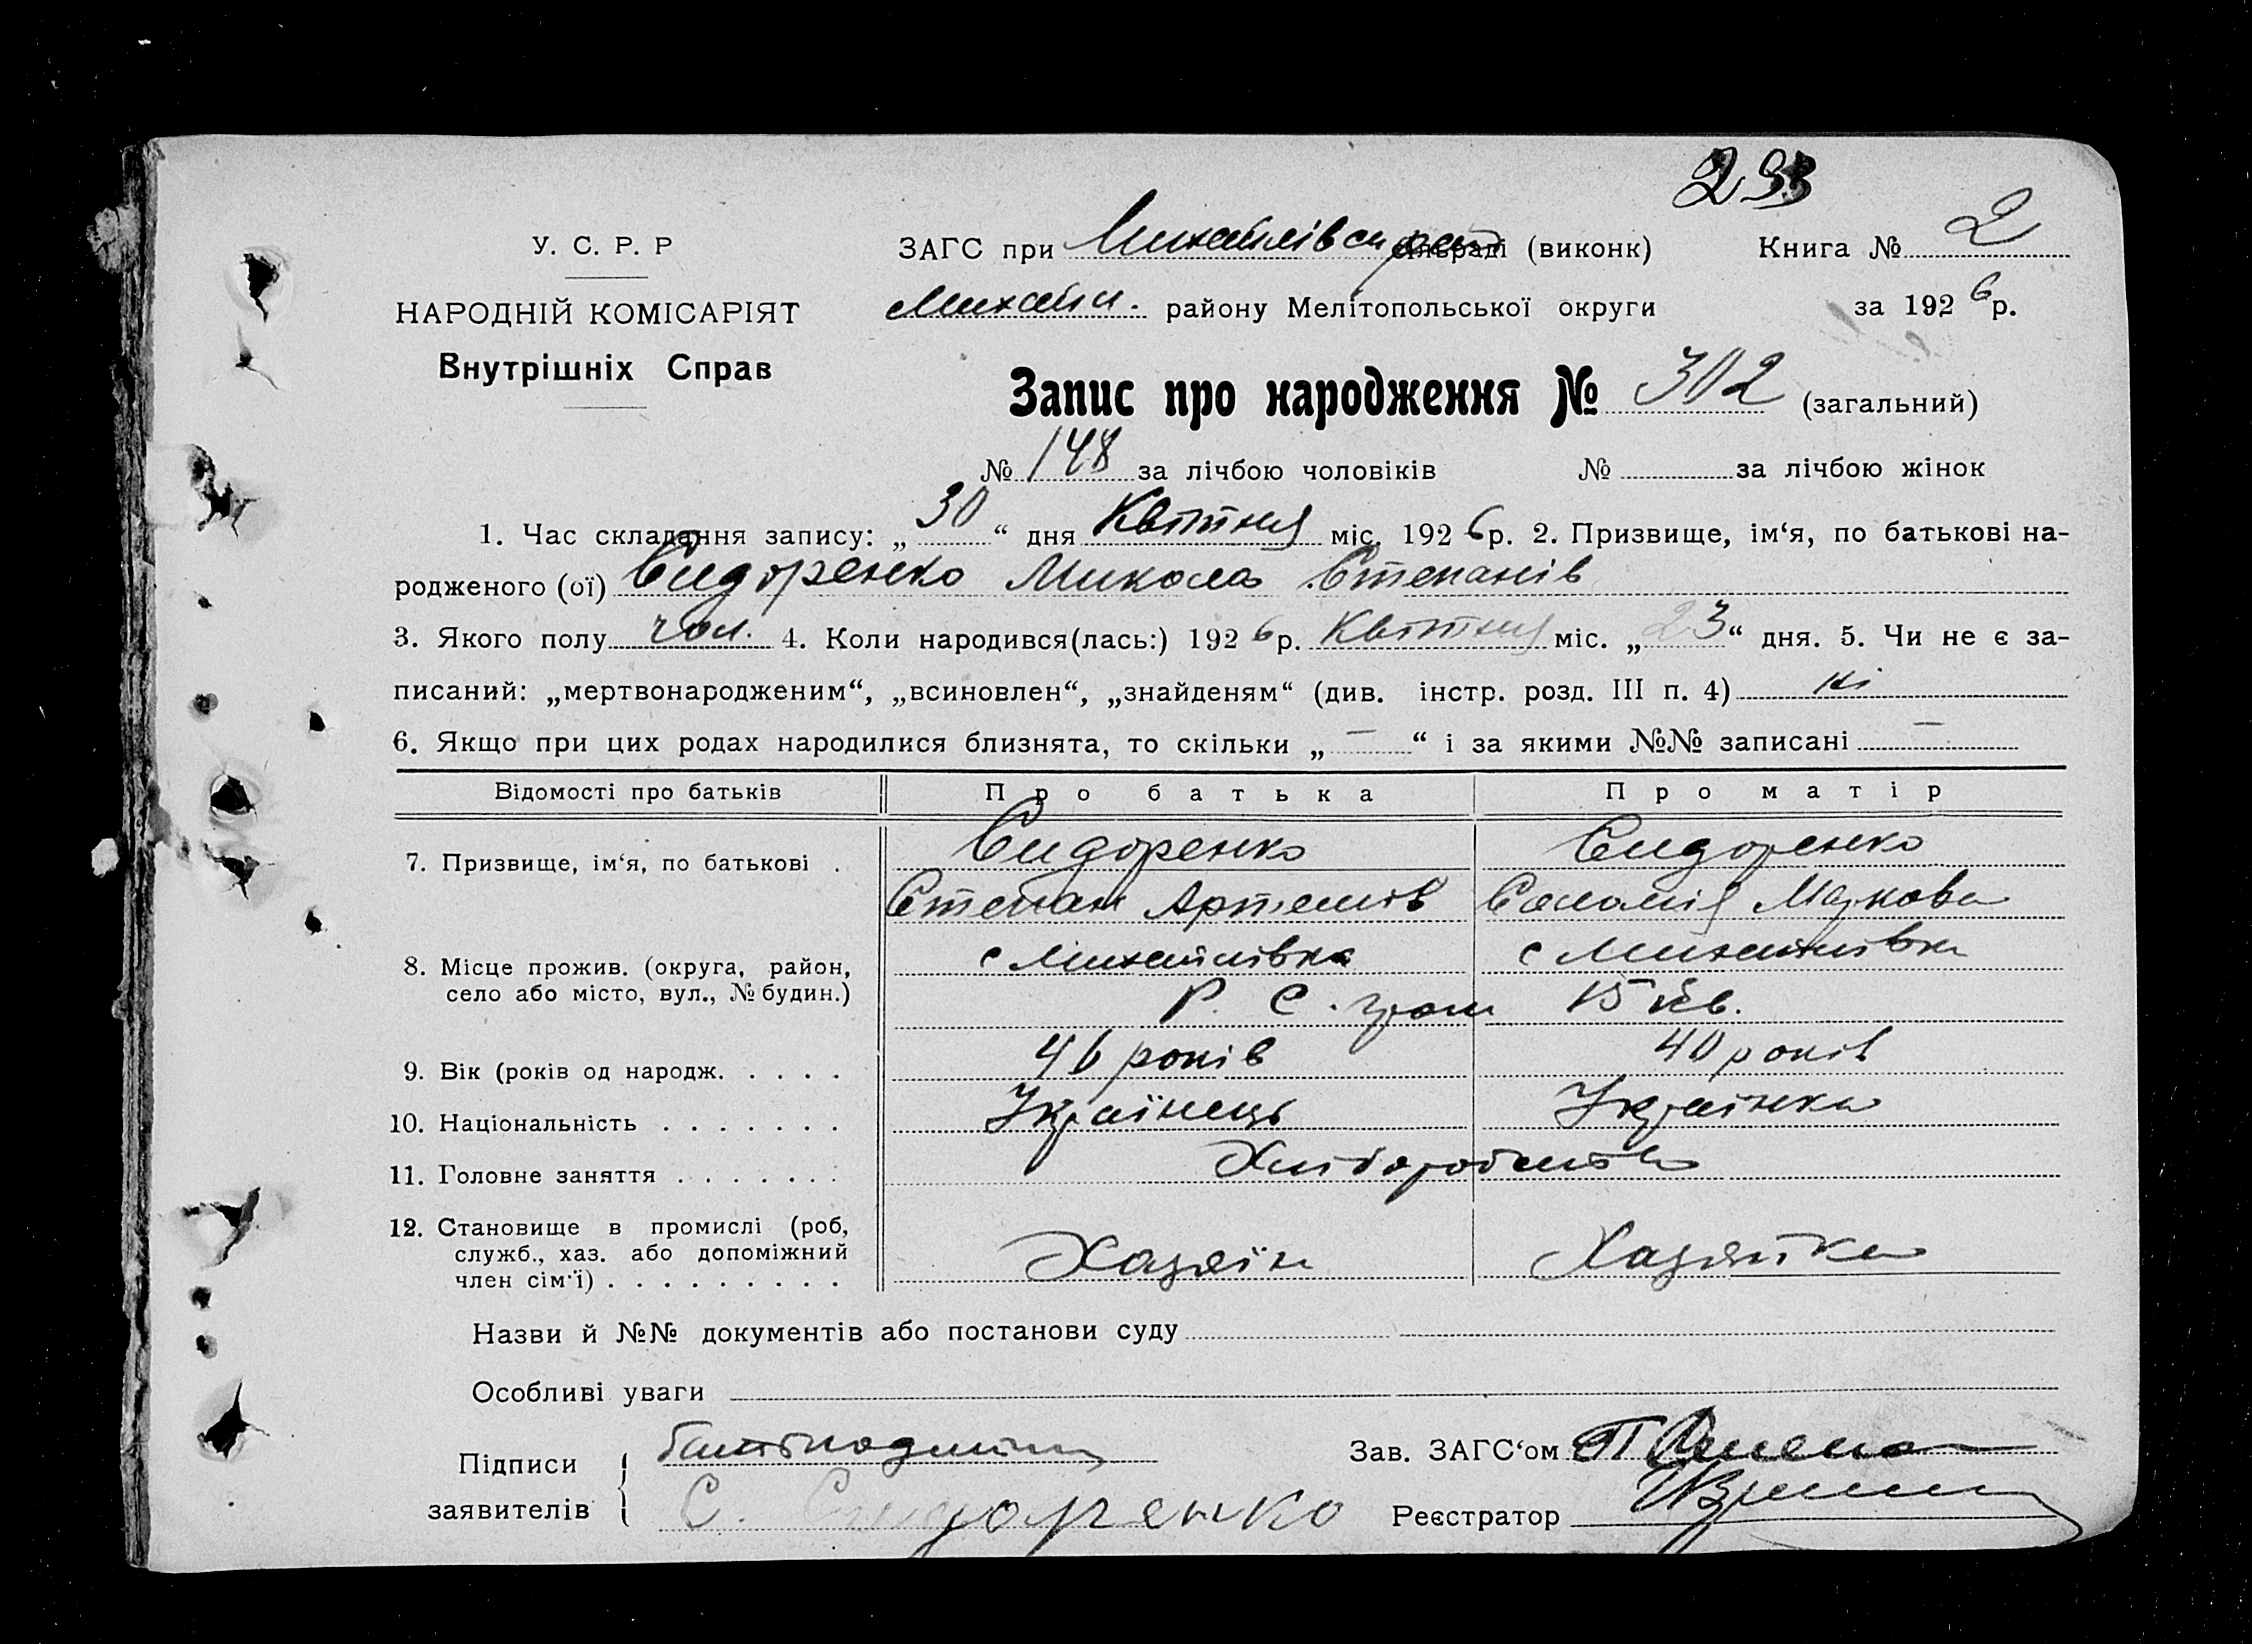 293
У. С. Р. Р
НАРОДНІЙ КОМІСАРІЯТ
Внутрішніх Справ
ЗАГС при Михайлівськ рай сільраді (виконк) Книга № 2
Михайл. району Мелітопольської округи за 1926 р.
Запис про народження № 302 (загальний)
№ 148 за лічбою чоловіків № за лічбою жінок
1. Час складання запису: „30“ дня Квітня міс. 1926 р. 2. Призвище, ім‘я, по батькові на-
родженого (ої) Сидоренко Микола Степанів
3. Якого полу чол. 4. Коли народився(лась:) 1926 р. Квітня міс. „23“ дня. 5. Чи не є за-
писаний: „мертвонародженим“, „всиновлен“, „знайденям“ (див. інстр. розд. III п. 4) ні
6. Якщо при цих родах народилися близнята, то скільки „—“ і за якими №№ записані —
Відомості про батьків Про батька Про матір
7. Призвище, ім‘я, по батькові . Сидоренко Сидоренко
Степан Артемів Саломія Маркова
8. Місце прожив. (округа, район, с Михайлівка с Михайлівка
село або місто, вул., № будин.) Р. С. гром 15 кв.
9. Вік (років од народж. . . . . 46 років 40 років
10. Національність . . . . . . . Українець Українка
11. Головне заняття . . . . . . . Хліборобство
12. Становище в промислі (роб,
служб., хаз. або допоміжний Хазяїн Хазяйка
член сім‘ї) . . . . . . . . .
Назви й №№ документів або постанови суду
Особливі уваги
Підписи Зав. ЗАГС‘ом
заявителів С. Сидоренко Реєстратор